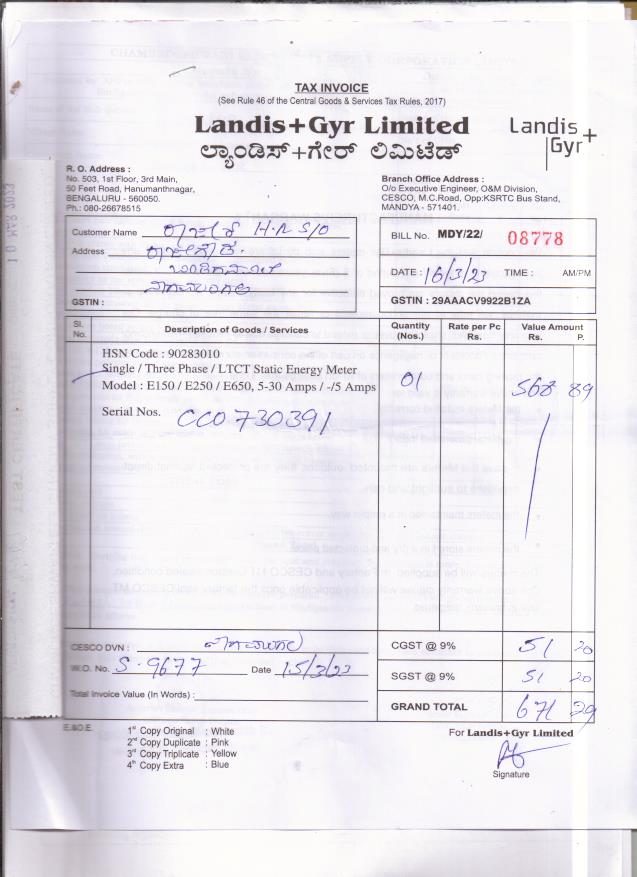 TAX INVOICE
(See Rule 46 of the Central Goods & Services Tax Rules, 2017)
Landis+Gyr Limited
ಲ್ಯಾಂಡಿಸ್+ಗೇರ್ ಲಿಮಿಟೆಡ್
Landis+
Gyr
R. O. Address :
No. 503, 1st Floor, 3rd Main,
50 Feet Road, Hanumanthnagar,
BENGALURU - 560050.
Ph.: 080-26678515
Branch Office Address :
O/o Executive Engineer, O&M Division,
CESCO, M.C.Road, Opp:KSRTC Bus Stand,
MANDYA - 571401.
Customer Name H.R S/O
Address
GSTIN :
BILL No. MDY/22/ 08778
DATE : 16/3/23 TIME : AM/PM
GSTIN : 29AAACV9922B1ZA
Sl. No. Description of Goods / Services Quantity (Nos.) Rate per Pc Rs. Value Amount Rs. P.
HSN Code : 90283010
Single / Three Phase / LTCT Static Energy Meter
Model : E150 / E250 / E650, 5-30 Amps / -/5 Amps 01 568 89
Serial Nos. CC0730391
CESCO DVN :
W.O. No. S-9677 Date 15/3/23
Total Invoice Value (In Words) :
CGST @ 9% 51 20
SGST @ 9% 51 20
GRAND TOTAL 671 29
E.&O.E.
1st Copy Original : White
2nd Copy Duplicate : Pink
3rd Copy Triplicate : Yellow
4th Copy Extra : Blue
For Landis+Gyr Limited
Signature
10 MAR 2023